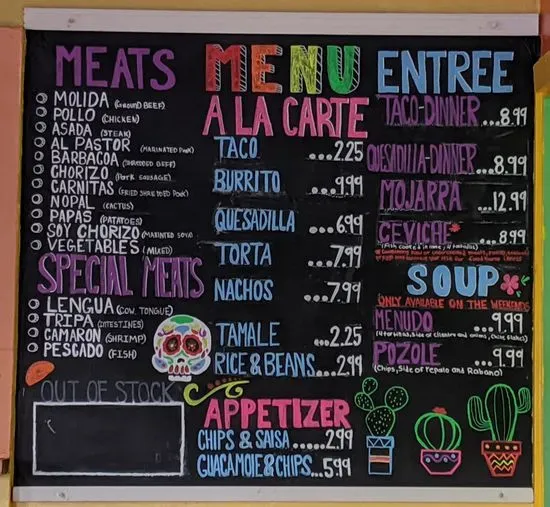 MEATS
MOLIDA (Ground BEEF)
POLLO (CHICKEN)
ASADA (STEAK)
AL PASTOR (MARINATED PORK)
BARBACOA (SHREDDED BEEF)
CHORIZO (PORK SAUSAGE)
CARNITAS (FRIED SHREDDED PORK)
NOPAL (CACTUS)
PAPAS (PATATOES)
SOY CHORIZO (MARINTED SOYA)
VEGETABLES (MIXED)
SPECIAL MEATS
LENGUA (COW TONGUE)
TRIPA (INTESTINES)
CAMARON (SHRIMP)
PESCADO (FISH)
OUT OF STOCK
MENU
A LA CARTE
TACO ...2.25
BURRITO ...9.99
QUESADILLA ...6.99
TORTA ...7.99
NACHOS ...7.99
TAMALE ...2.25
RICE & BEANS...2.99
APPETIZER
CHIPS & SALSA ......2.99
GUACAMOlE & CHIPS...5.99
ENTREE
TACO-DINNER ...8.99
QUESADILLA-DINNER ...8.99
MOJARRA ...12.99
CEVICHE* ...8.99
SOUP
ONLY AVAILABLE ON THE WEEKENDS
MENUDO ...9.99
POZOLE ...9.99
(Chips, Side of repalo and Rabano)